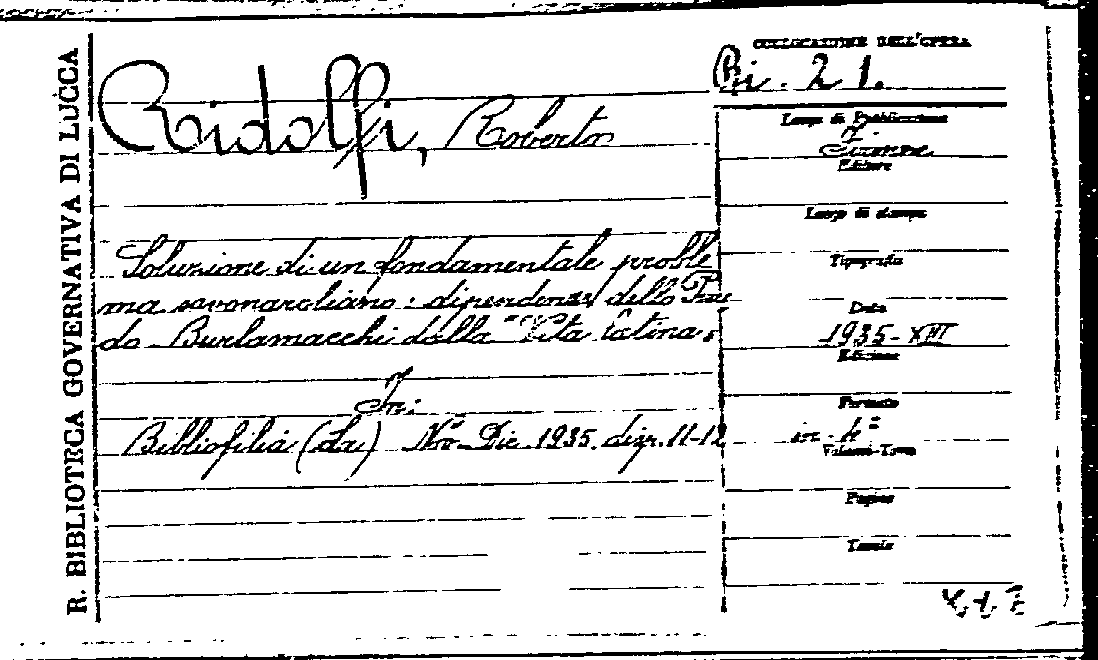 R. BIBLIOTECA GOVERNATIVA DI LUCCA
COLLOCAZIONE DELL'OPERA
Bi. 21.
Ridolfi, Roberto
Luogo di Pubblicazione
Firenze
Editore
Luogo di stampa
Soluzione di un fondamentale proble
Tipografia
ma savonaroliano: dipendenza dello Pseu
Data
do-Burlamacchi dalla "Vita latina"
1935-XIII
Edizione
In:
Formato
Bibliofilia (La) Nov-Dic 1935. disp. 11-12
in-4°
Volumi-Tomi
Pagine
Tavole